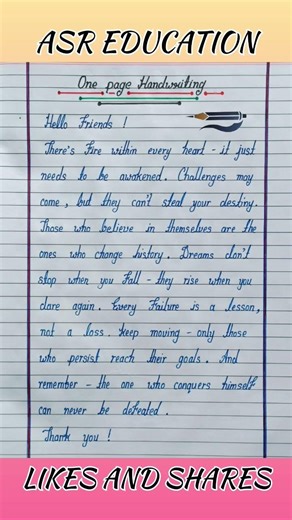 ASR EDUCATION
One page Handwriting
Hello Friends !
There's Fire within every heart - it just
needs to be awakened. Challenges may
come, but they can't steal your destiny.
Those who believe in themselves are the
ones who change history. Dreams don't
stop when you fall - they rise when you
dare again. Every Failure is a lesson,
not a loss. Keep moving - only those
who persist reach their goals. And
remember - the one who conquers himself
can never be defeated.
Thank you !
LIKES AND SHARES